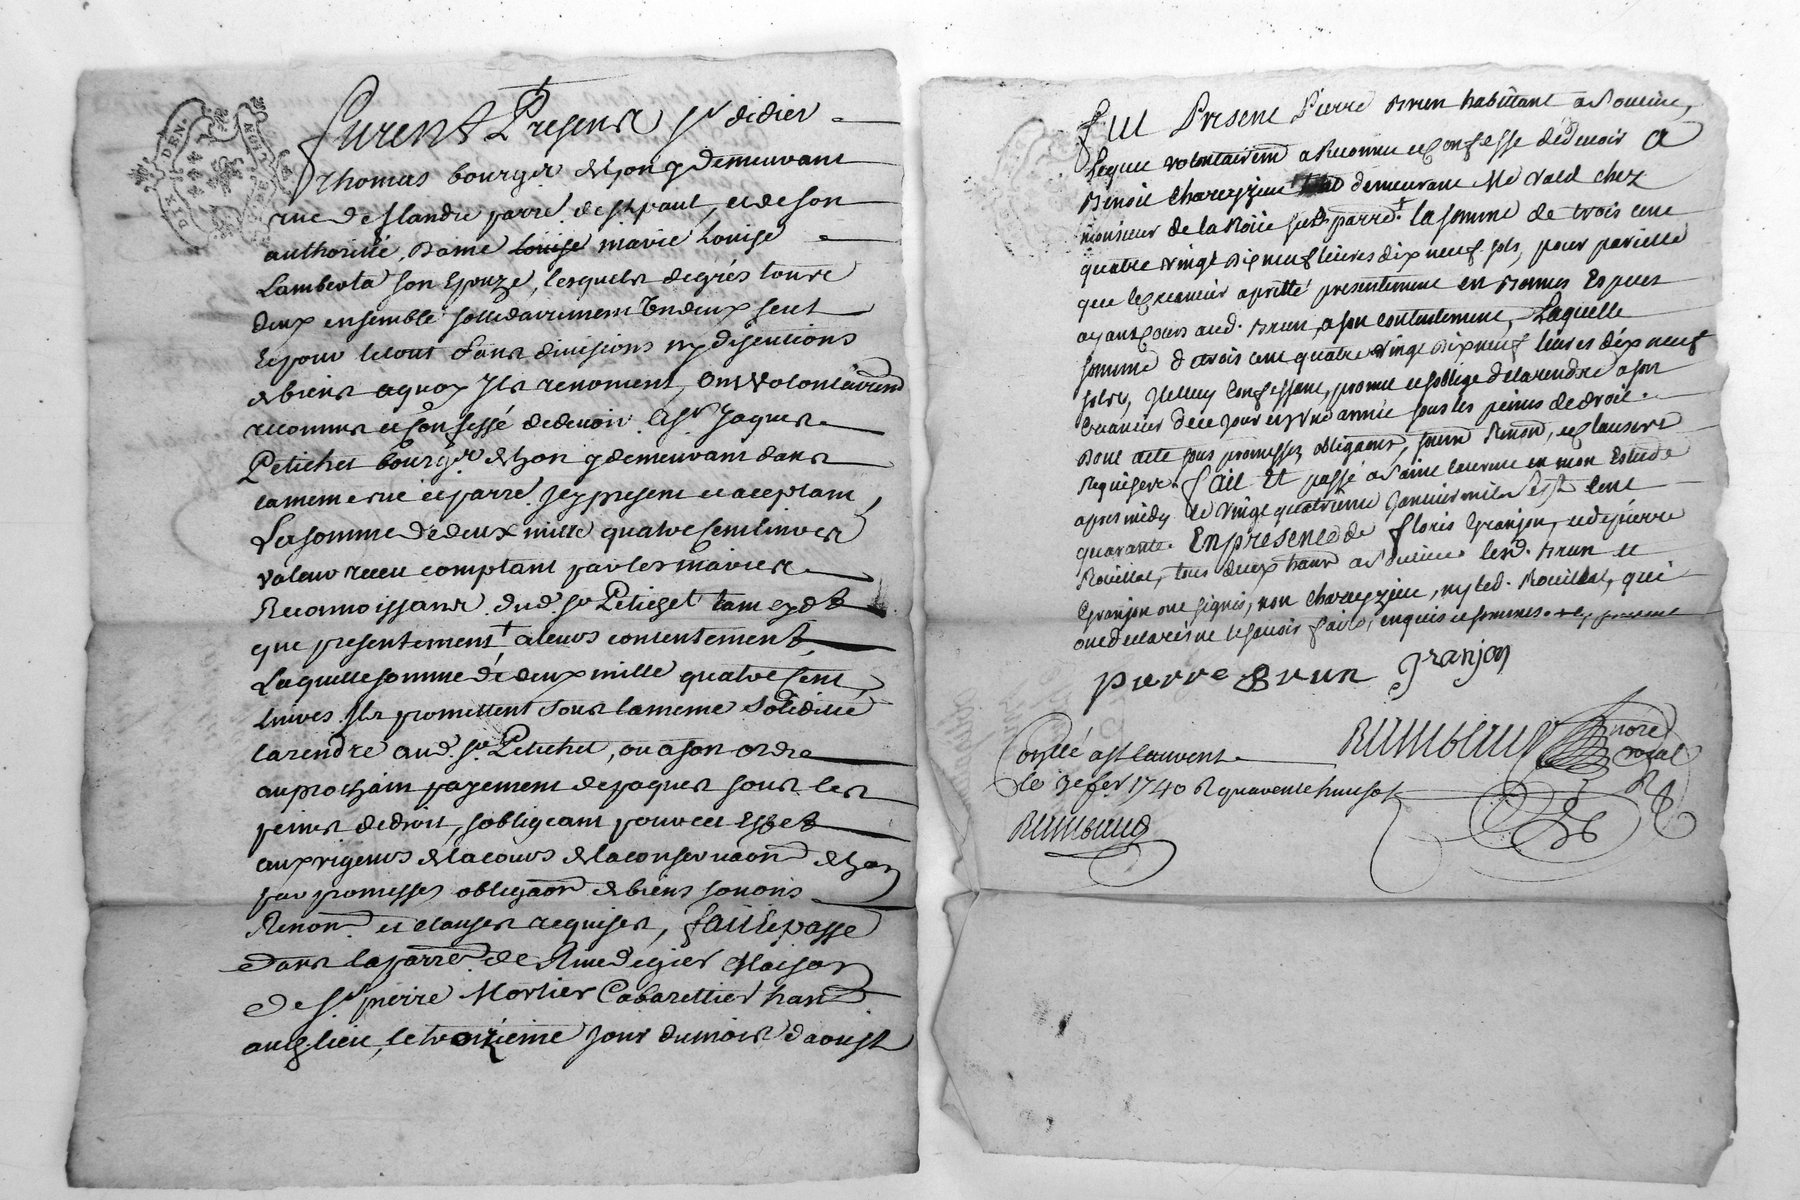 furent Presents sr didier
thomas bourgs de Lyon y demeurant
rue de flandre parre. de st paul, et de son
authorité, Dame Louise marie Louise
Lamberta son Epouze, lesquels de grés tours
deux ensemble sollidairement Un deux seul
Et pour le tout sans divisions ny discutions
de biens a quoy Ils renoncent, ont volontairemt
reconnus et Confessé de devoir au sr Jaques
Petichet bourgs de Lyon y demeurant dans
la meme rue et parre. Jcy present et aceptant,
La somme de deux mille quatre Cent livres
valeur receu comptant par les mariés
Reconnoissants dud. sr Petichet tant cyd.t
que presentement + a leurs contentement,
Laquelle somme de deux mille quatre Cent
livres Ils promettent sous la meme solidité
la rendre aud. sr Petichet, ou a son ordre
au prochain payement de paques sous les
peines de droit, sobligeant pour cet Effet
aux rigeurs de la cours de la conservaon de Lyon
par promesses obligaon de biens soumis
Renon. et clauses requises, fait Et passé
dans la parre. de Ainedigier Maison
de sr. pierre Mortier Cabarettier hant
aud lieu, le troizieme Jour du mois daoust
DIX DEN.
fut Present Pierre Brun habittant a
Lequel volontairemt a Reconnu et Confessé de devoir A
Benoit Chareyzieu demeurant Me Valet chez
monsieur de la Roiie parre. + la somme de trois cent
quatre vingt dix neuf livres dix neuf sols, pour pareille
que le creancier a pretté presentement en Bonnes Especes
ayant Cours aud. Brun, a son contentement, Laquelle
somme de trois cent quatre vingt dix neuf livres dix neuf
sols, Jcelluy Confessant, promet et soblige de la rendre a son
Creancier de ce jour en Une année sous les peines de droit.
Dont acte sous promesses, obligaons, soumn Renon, et clauses
Requises. fait Et passé a Saint laurent en mon Estude
apres midy le vingt quatrieme Janvier mil sept Cent
quarante. En presence de floris Granjon, et de pierre
Rouillat, tous deux hants lesd. Brun et
Granjon ont signés, non Chareyzieu, ny led. Rouillat, qui
ont declarés ne le scavoir faire, enquis et sommés. + cy present
pierre Brun Granjon
Rimbaud nore royal
Conllé a st laurent
le 3e fer 1740 R quarente huit sols
Rimbaud